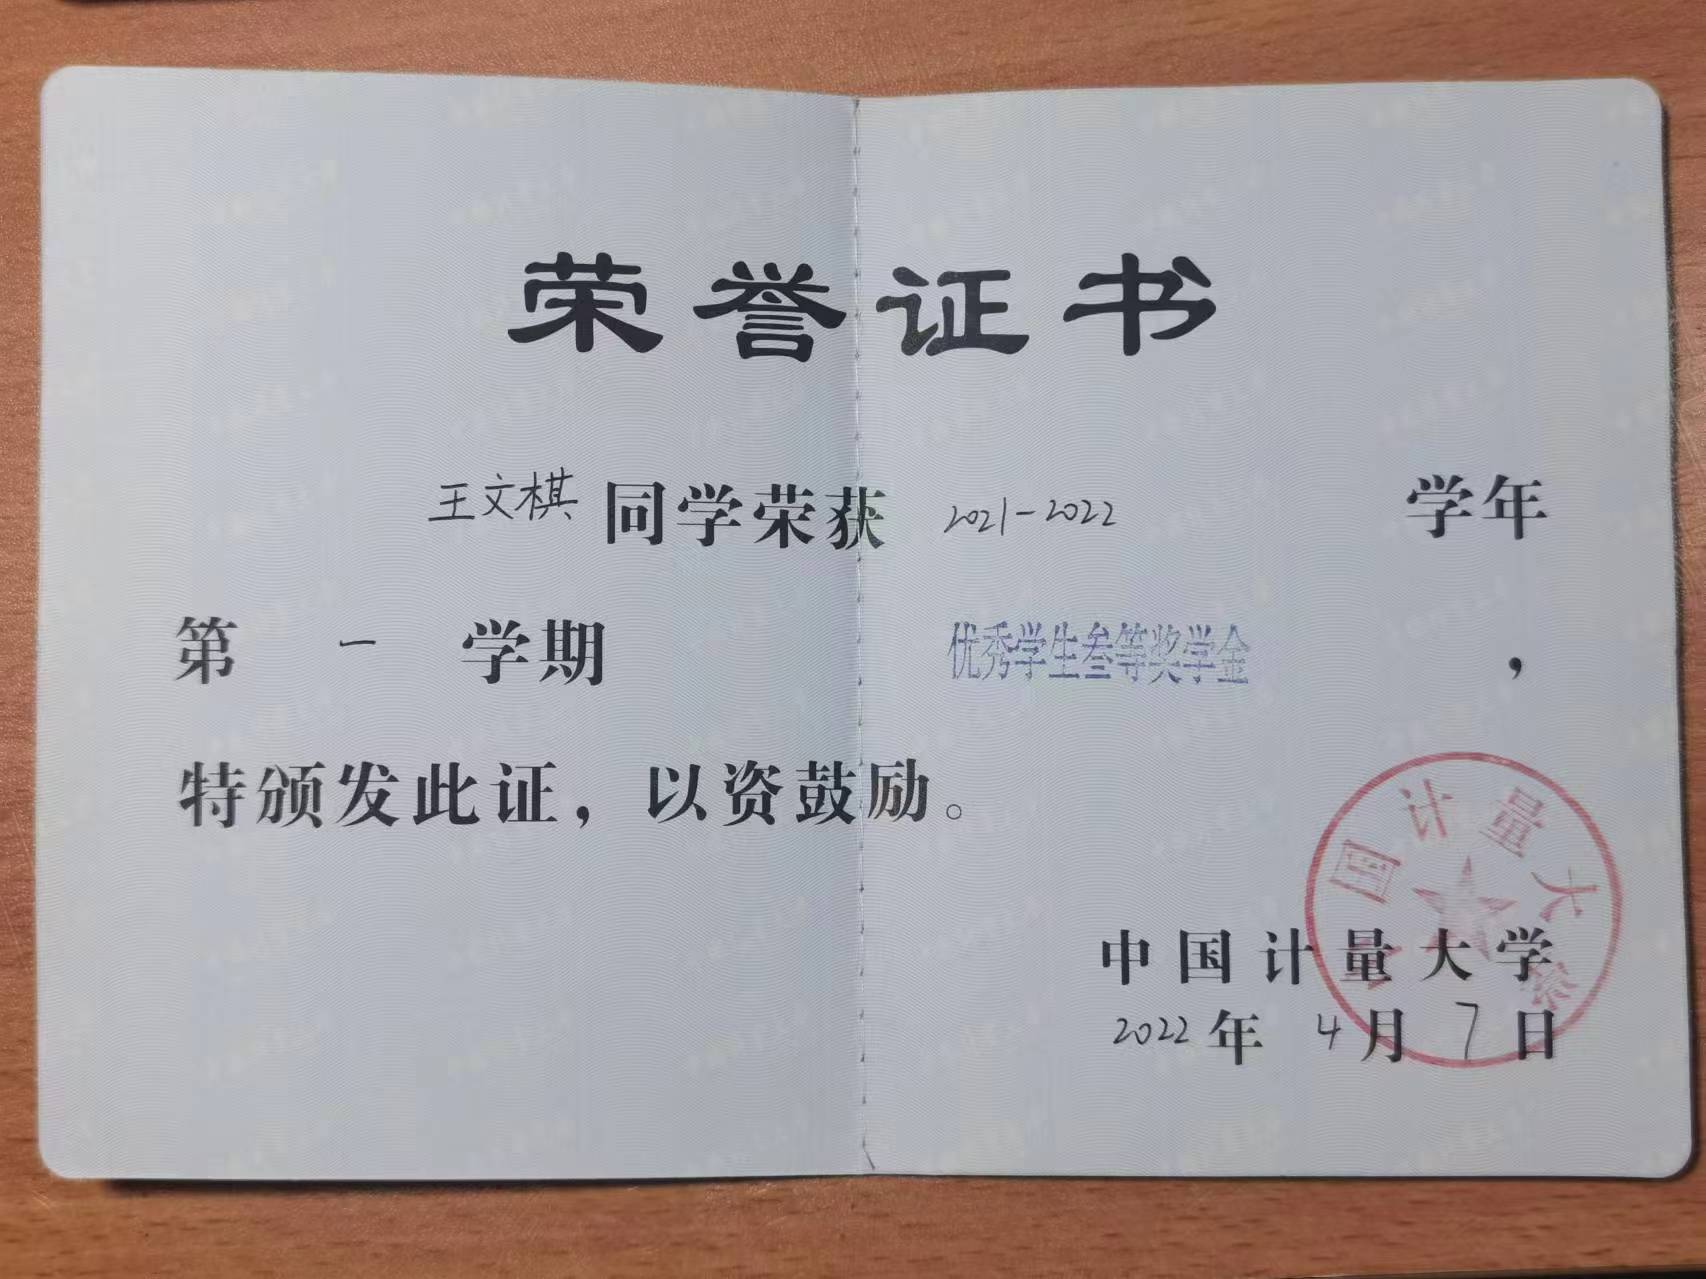 荣誉证书
王文棋同学荣获 2021-2022 学年
第 一 学期 优秀学生叁等奖学金，
特颁发此证，以资鼓励。
中国计量大学
2022年 4月 7日
国计量大